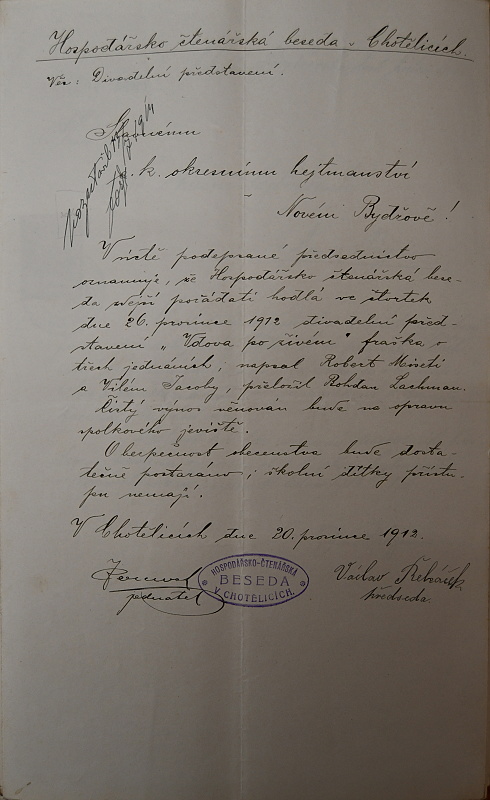 Hospodářsko čtenářská beseda v Chotělicích.
Věc: Divadelní představení.
Slavnému
k. okresnímu hejtmanství
v
Novém Bydžově!
V úctě podepsané předsednictvo
oznamuje, že Hospodářsko čtenářská bese-
da zdejší pořádati hodlá ve čtvrtek
dne 26. prosince 1912 divadelní před-
stavení „Vdova po živém" fraška o
třech jednáních; napsal Robert Misch
a Vilém Jacoby, přeložil Bohdan Lachman.
Čistý výnos věnován bude na opravu
spolkového jeviště.
O bezpečnost obecenstva bude dosta-
tečně postaráno; školní dítky přístu-
pu nemají.
V Chotělicích dne 20. prosince 1912.
jednatel
HOSPODÁŘSKO-ČTENÁŘSKÁ
BESEDA
V CHOTĚLICÍCH.
Václav Řeháček
předseda.